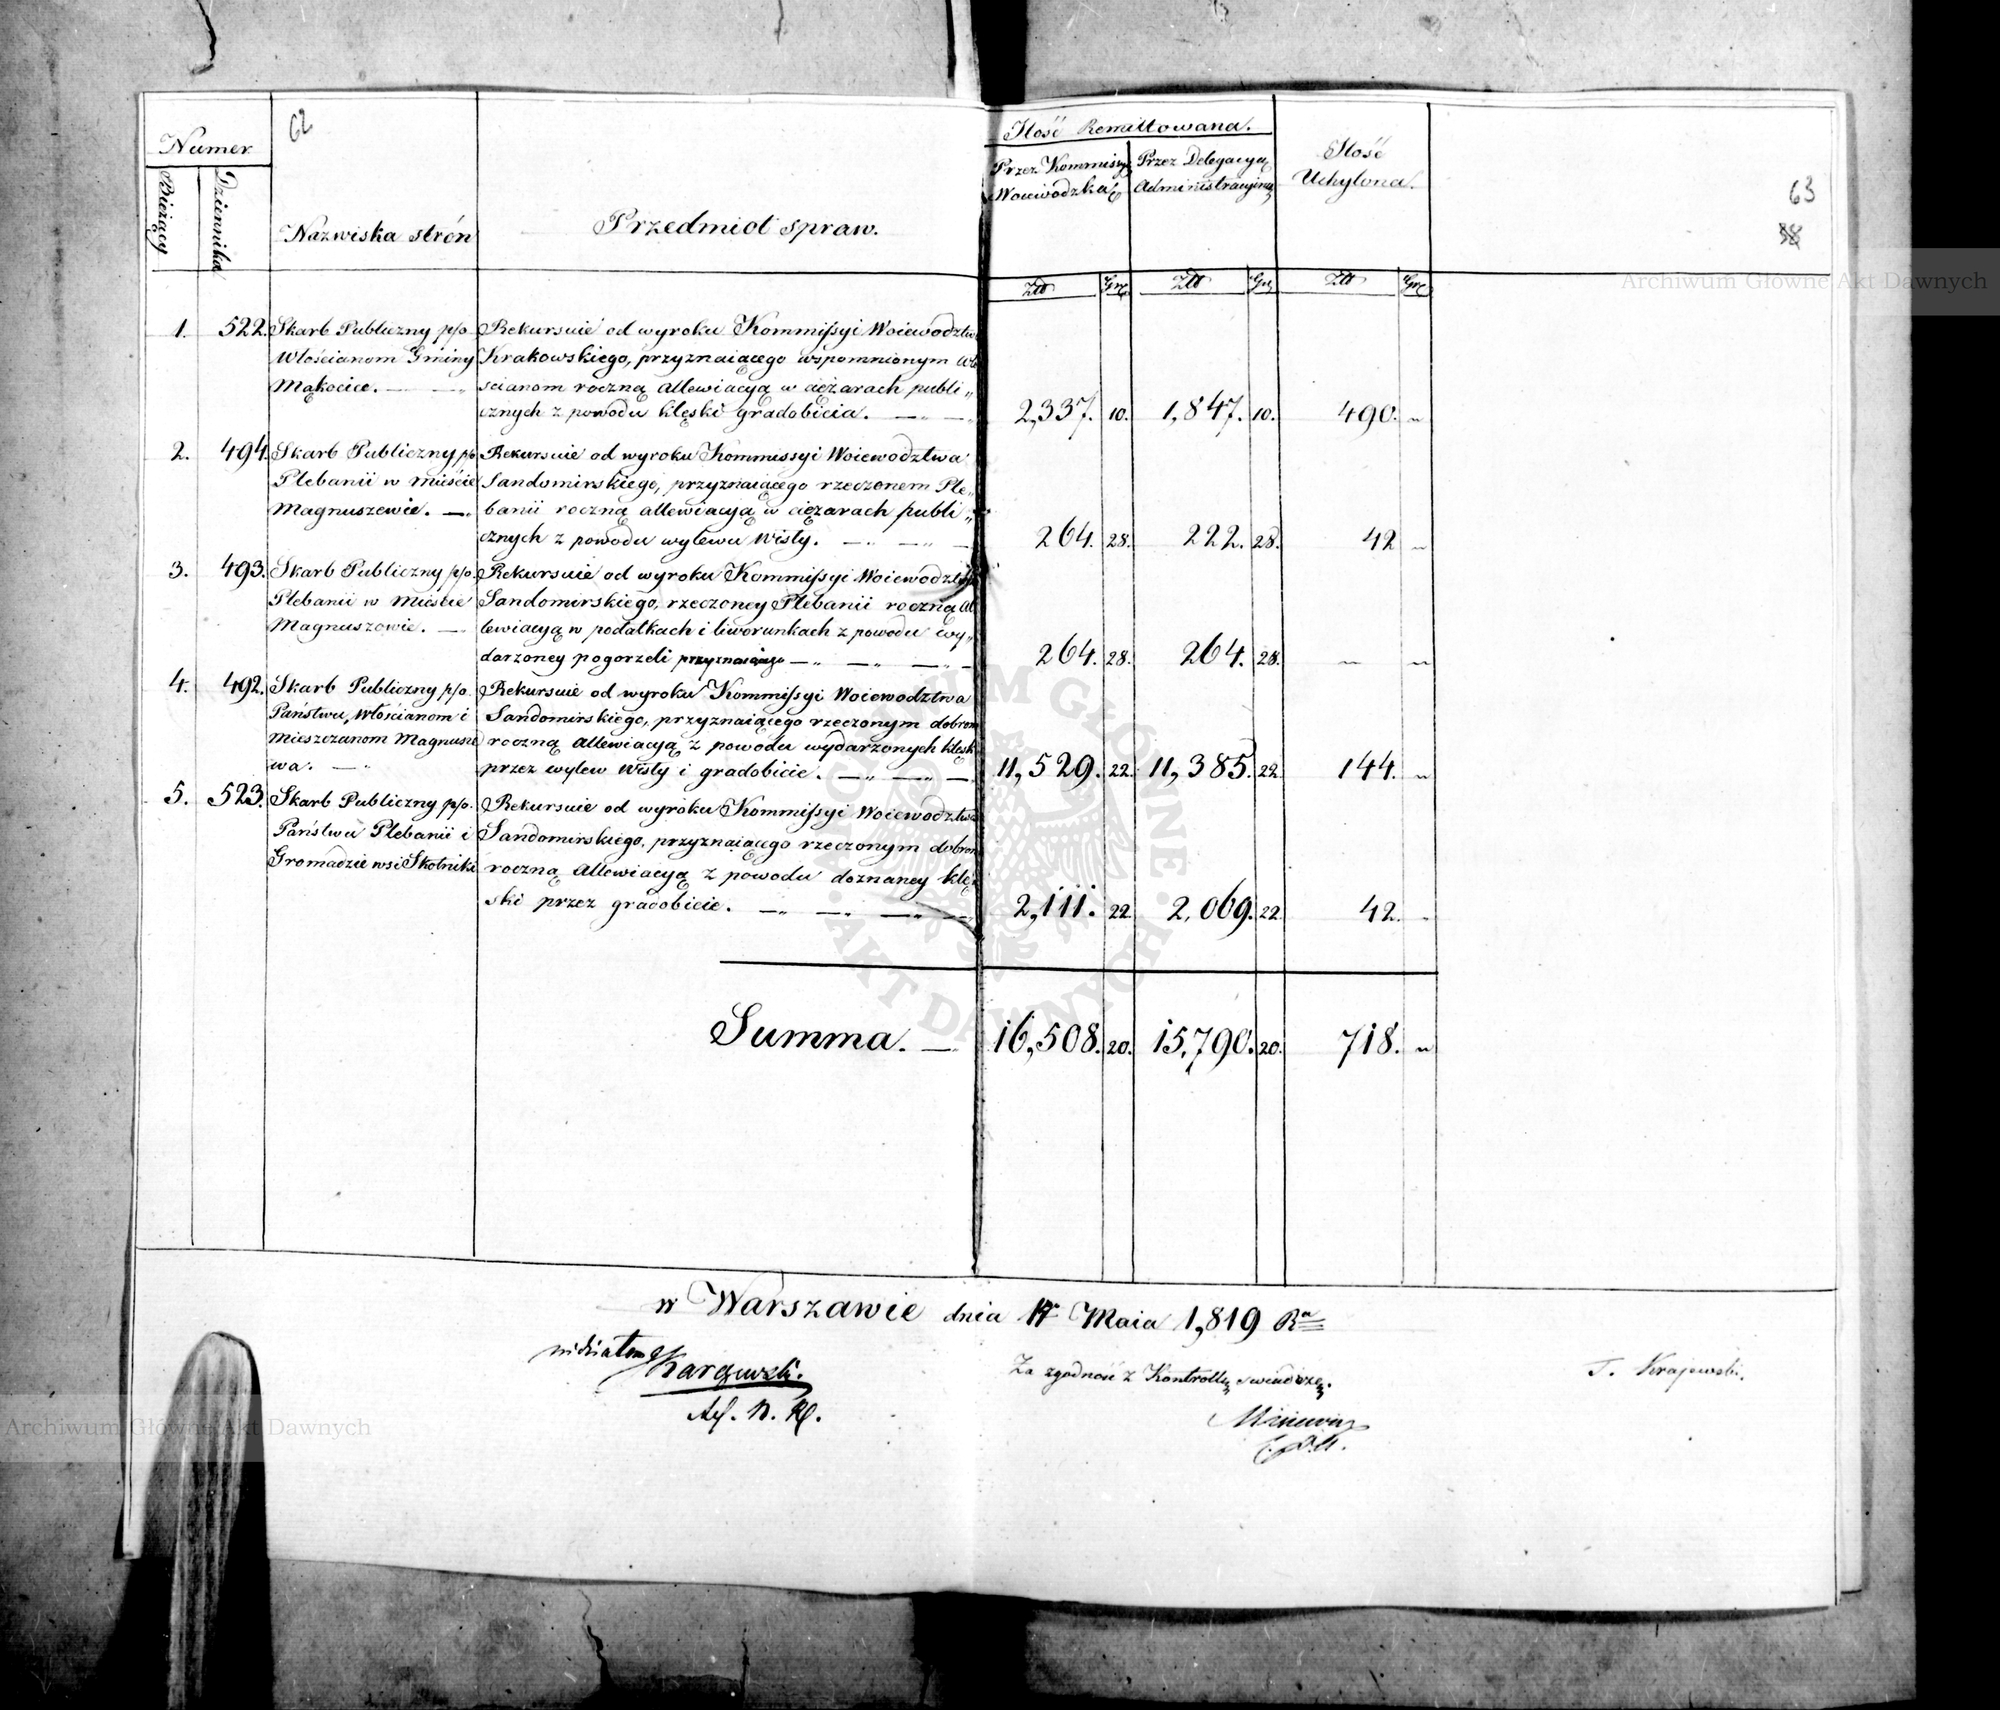 62
Numer
Bieżący
Dziennika
Nazwiska strón
Przedmiot spraw.
Ilość Remittowana.
Przez Kommissyą Woiewodzką
Przez Delegacyą Administracyiną
Ilość Uchylona.
63
38
Złło Gr. Złło Gr. Złło Gr.
1. 522. Skarb Publiczny p/o Rekursuie od wyroku Kommissyi Woiewodztwa
Włościanom Gminy Krakowskiego, przyznaiącego wspomnionym Wło
Mąkocice. scianom roczną allewiacyą w ciężarach publi„
cznych z powodu klęski gradobicia. 2,337. 10. 1,847. 10. 490. „
2. 494. Skarb Publiczny p/o Rekursuie od wyroku Kommissyi Woiewodztwa
Plebanii w mieście Sandomirskiego, przyznaiącego rzeczonem Ple„
Magnuszewie. banii roczną allewiacyą w ciężarach publi„
cznych z powodu wylewu Wisły. 264. 28. 222. 28. 42 „
3. 493. Skarb Publiczny p/o. Rekursuie od wyroku Kommissyi Woiewodztwa
Plebanii w Mieście Sandomirskiego, rzeczoney Plebanii roczną al
Magnuszowie. lewiacyą w podatkach i liworunkach z powodu wy„
darzoney pogorzeli przyznaiącego 264. 28. 264. 28. „ „
4. 492. Skarb Publiczny p/o. Rekursuie od wyroku Kommissyi Woiewodztwa
Państwu, Włościanom i Sandomirskiego, przyznaiącego rzeczonym dobrom
Mieszczanom Magnusze roczną allewiacyą z powodu wydarzonych klęsk
wa. przez wylew Wisły i gradobicie. 11,529. 22. 11,385. 22 144. „
5. 523. Skarb Publiczny p/o. Rekursuie od wyroku Kommissyi Woiewodztwa
Państwu Plebanii i Sandomirskiego, przyznaiącego rzeczonym dobrom
Gromadzie wsi Skotniki roczną allewiacyą z powodu doznaney klę„
ski przez gradobicie. 2,111. 22 2,069. 22 42. „
Summa. 16,508. 20. 15,790. 20. 718. „
w Warszawie dnia 17 Maia 1,819 Ra
Za zgodność z Kontrollą swiadczę.
T. Krajewski.
Archiwum Główne Akt Dawnych
Archiwum Główne Akt Dawnych
ARCHIWUM GŁÓWNE · AKT DAWNYCH ·